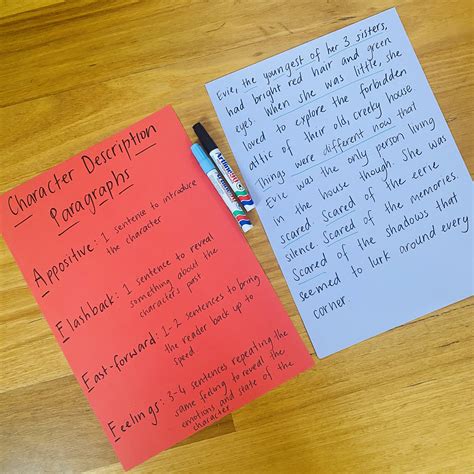 Character Description
Paragraphs
Appositive: 1 sentence to introduce
the character
Flashback: 1 sentence to reveal
something about the
characters past
Fast-forward: 1-2 sentences to bring
the reader back up to
speed
Feelings: 3-4 sentences repeating the
same feeling to reveal the
emotions and state of the
character
Artline
Evie, the youngest of her 3 sisters,
had bright red hair and green
eyes. When she was little, she
loved to explore the forbidden
attic of their old, creeky house.
Things were different now that
Evie was the only person living
in the house though. She was
scared. Scared of the eerie
silence. Scared of the memories.
Scared of the shadows that
seemed to lurk around every
corner.